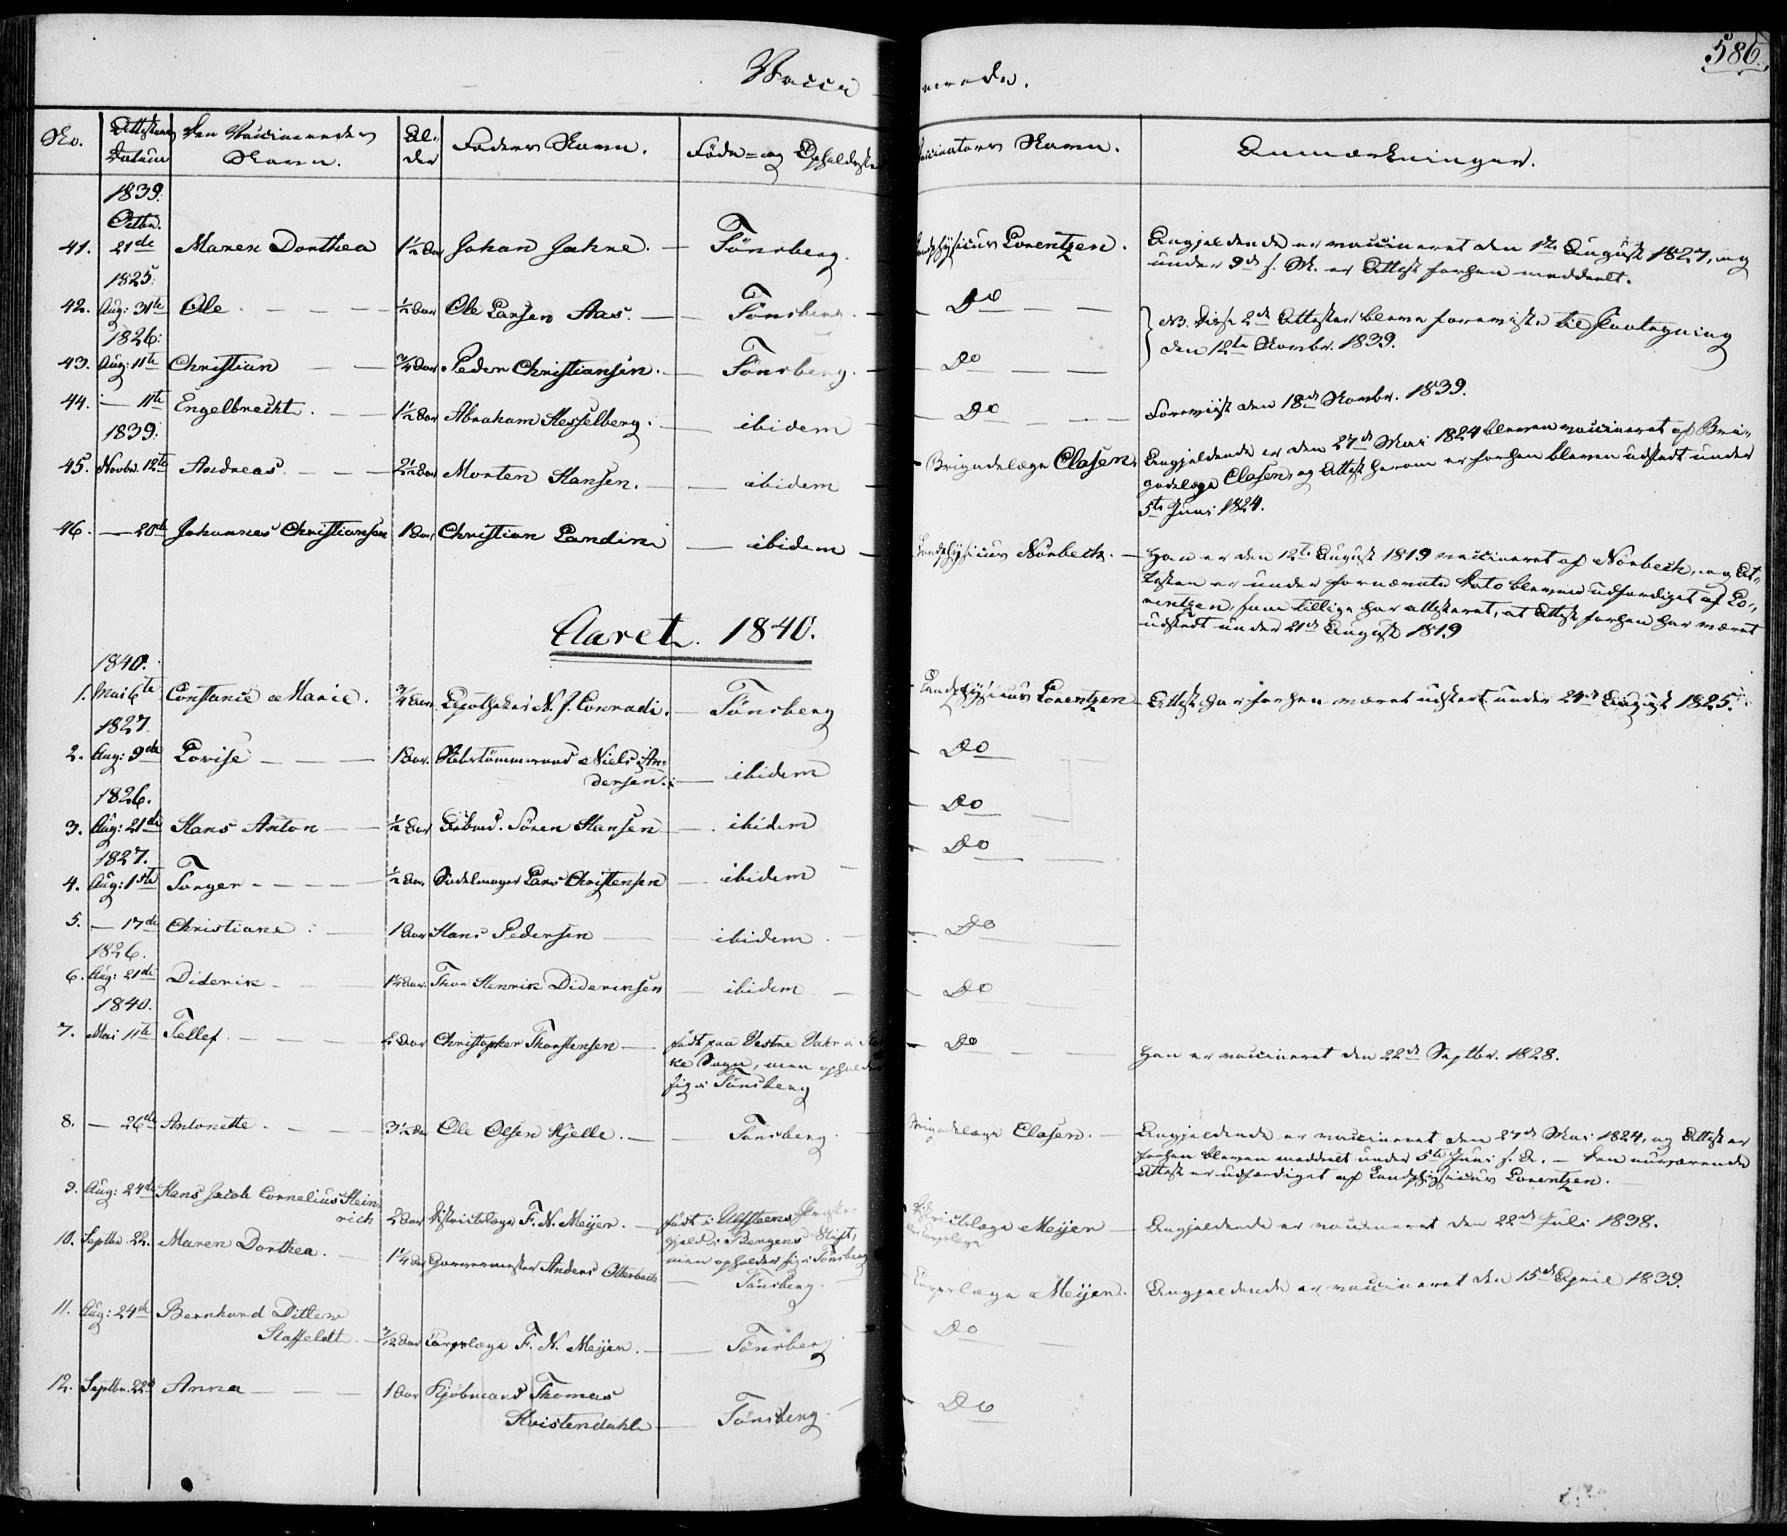 586.
Vacci
nerede.
No.
Attestens Datum
Den Vaccineredes Navn.
Al- der
Faders Navn.
Føde- og Opholdsste
Vaccinators Navn.
Anmærkninger.
1839.
Octbr.
41. 21de Maren Dorthea 1½ Aar Johan Jahre. — Tönsberg. Landphysicus Lorentzen. Angjeldende er vaccineret den 1ste August 1827, og
under 9de s. M. er Attest forhen meddeelt.
1825.
42. Aug: 31te Ole ½ Aar Ole Larsen Aas. — Tönsberg. — Do — —
NB. Disse 2de Attester bleve foreviiste til Paategning
den 12te Novbr. 1839.
1826.
43. Aug: 11te Christian ¾ Aar Peder Christiansen. — Tönsberg. — Do — —
44. — 11te Engelbrecht. 1½ Aar Abraham Hesselberg. — ibidem — Do — — Foreviist den 18de Novbr. 1839.
1839.
45. Novbr. 12te Andreas. 2½ Aar Morten Hansen. — ibidem — Brigadelæge Clasen. Angjeldende er den 27de Mai 1824 bleven vaccineret af Bri-
gadelæge Clasen, og Attest herom er forhen bleven udstedt under
5te Juni 1824.
46. — 20de Johannes Christiansen 1 Aar Christian — ibidem — Landphysicus Norbech. — Han er den 12te August 1819 vaccineret af Norbech, og At-
testen er under fornævnte Dato bleven udfærdiget af Lo-
rentzen, som tillige har attesteret, at Attest forhen har været
udstedt under 21de August 1819
Aaret 1840.
1840.
1. Mai 6te Constance Marie. ¾ Aar Apotheker N. J. Conradi. — Tönsberg Landphysicus Lorentzen — Attest har forhen været udstedt under 24de August 1825.
1827.
2. Aug: 9de Lovise — — — 1 Aar. Skibstømmermand Niels An-
dersen. — ibidem — Do
1826.
3. Aug: 21de Hans Anton — — ½ Aar Søren Hansen — ibidem — Do —
1827.
4. Aug: 1ste Torger — — — — ½ Aar Sadelmager Lars Christensen — ibidem — — Do — —
5. — 17de Christiane 1 Aar Hans Pedersen — — ibidem. — — Do — —
1826.
6. Aug: 21de Diderik Aar. Thor Henrik Diderichsen — ibidem — — Do —
1840.
7. Mai 11te Tellef. — — — Aar Christopher Thorstensen — født paa Vestre
ke Sogn, men opholder
sig i Tönsberg
— Do — — Han er vaccineret den 22de Septbr. 1828.
8. — 26de Antonette — — — 3½ Aar Ole Olsen Kjelle. — — Tönsberg. — Brigadelæge Clasen. — Angjeldende er vaccineret den 27de Mai 1824, og Attest er
forhen bleven meddeelt under 5te Juni s. A. — Den nuværende
Attest er udfærdiget af Landphysicus Lorentzen. —
9. Aug: 24de Hans Jacob Cornelius Hein-
rich 2 Aar Districtslæge F. N. Meyer. — født i Præste-
gjeld i Bergens Stift,
men opholder sig i Tönsberg
Districtslæge Meyer — Angjeldende er vaccineret den 22de Juli 1838.
10. Septbr. 22. Maren Dorthea. — 1¼ Aar Garvermester Anders Otterbech — Tönsberg. — Corpslæge Meyer. Angjeldende er vaccineret den 15de April 1839.
11. Aug: 24de Bernhard Ditlew
Staffeldt. — Aar Corpslæge F. N. Meyer. — Tönsberg — Do —
12. Septbr. 22de Anna — — — 1 Aar Kjøbmand Thomas
Kvistendahl — Tönsberg. — Do